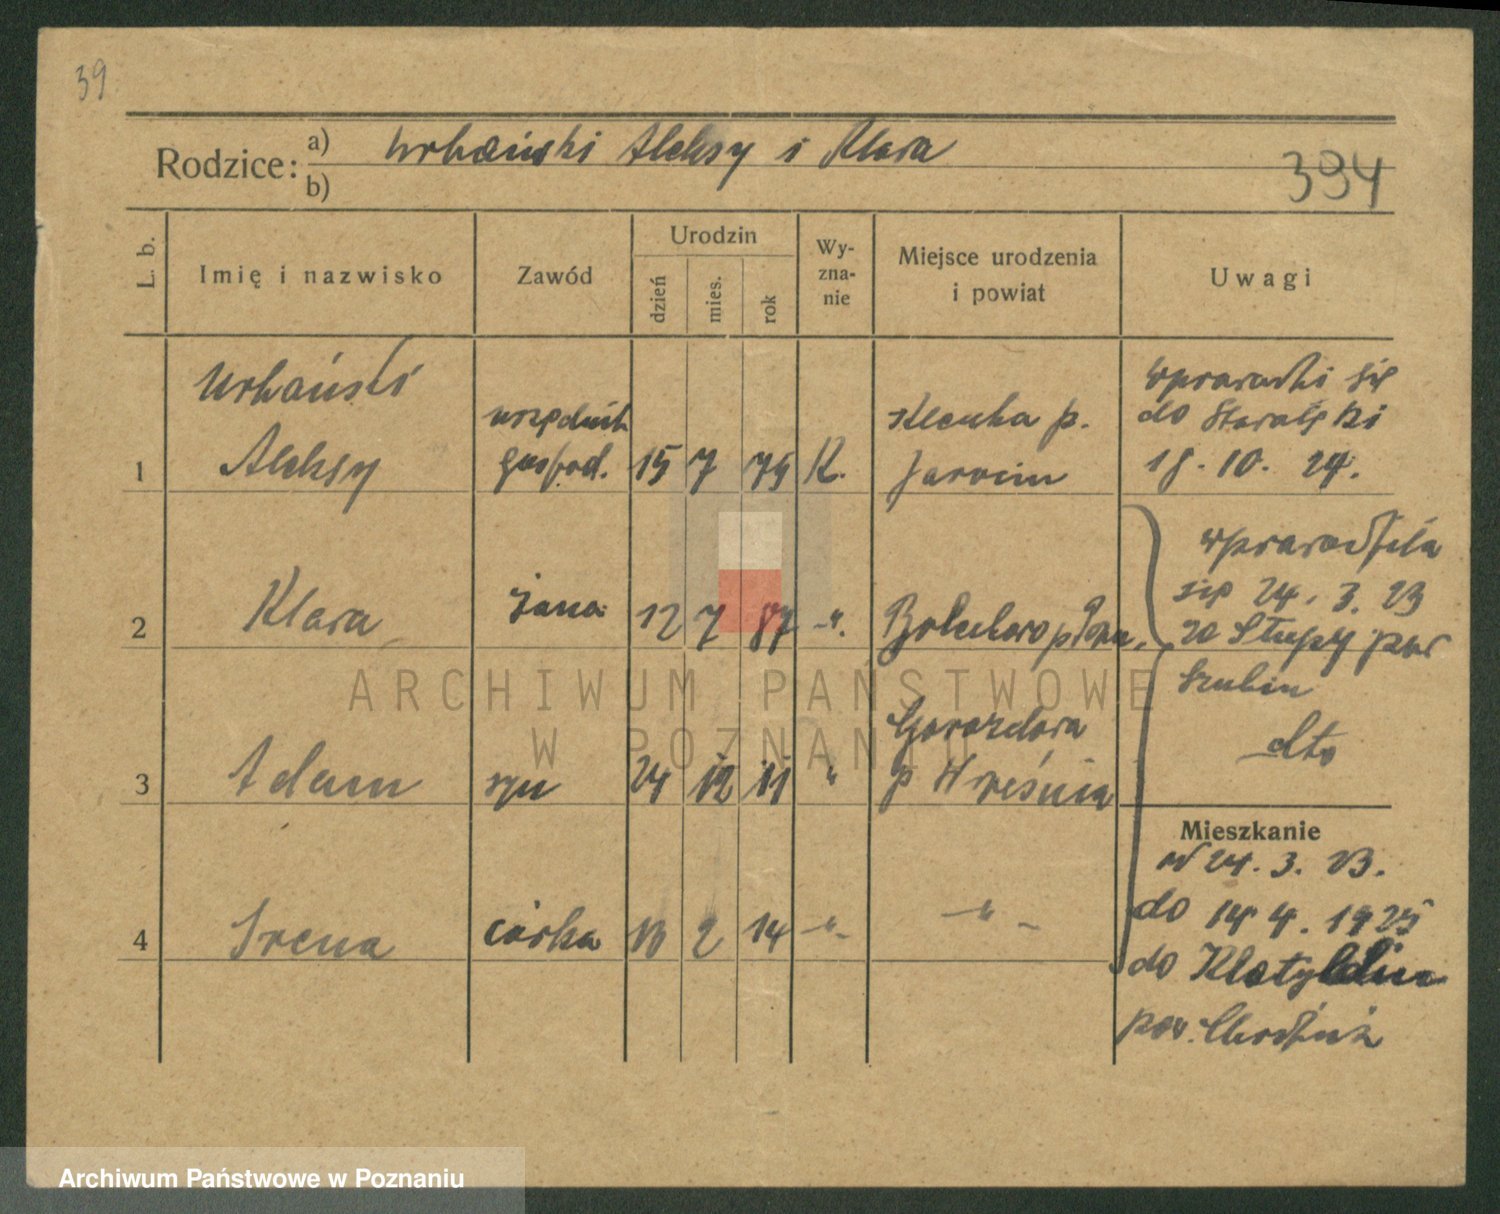 39
Rodzice: a) Urbański Aleksy i Klara
b)
394
L. b.
Imię i nazwisko
Zawód
Urodzin
dzień
mies.
rok
Wy-
zna-
nie
Miejsce urodzenia
i powiat
Uwagi
1
Urbański
Aleksy
urzędnik
gospod.
15 7 75 K.
Klenka p.
Jarocin
do
18. 10. 24.
2 Klara żona 12 7 87 -"-
się 24. 3. 23
ze Słupy pow
Szubin
3 Adam syn 24 12 11 "
Gorazdowa
p Września
dto
4 Irena córka 10 2 14 -"-
-"-
Mieszkanie
od 24. 3. 23.
do 14 4. 1925
do Klotyldin
pow. Chodzież
ARCHIWUM PAŃSTWOWE
W POZNANIU
Archiwum Państwowe w Poznaniu